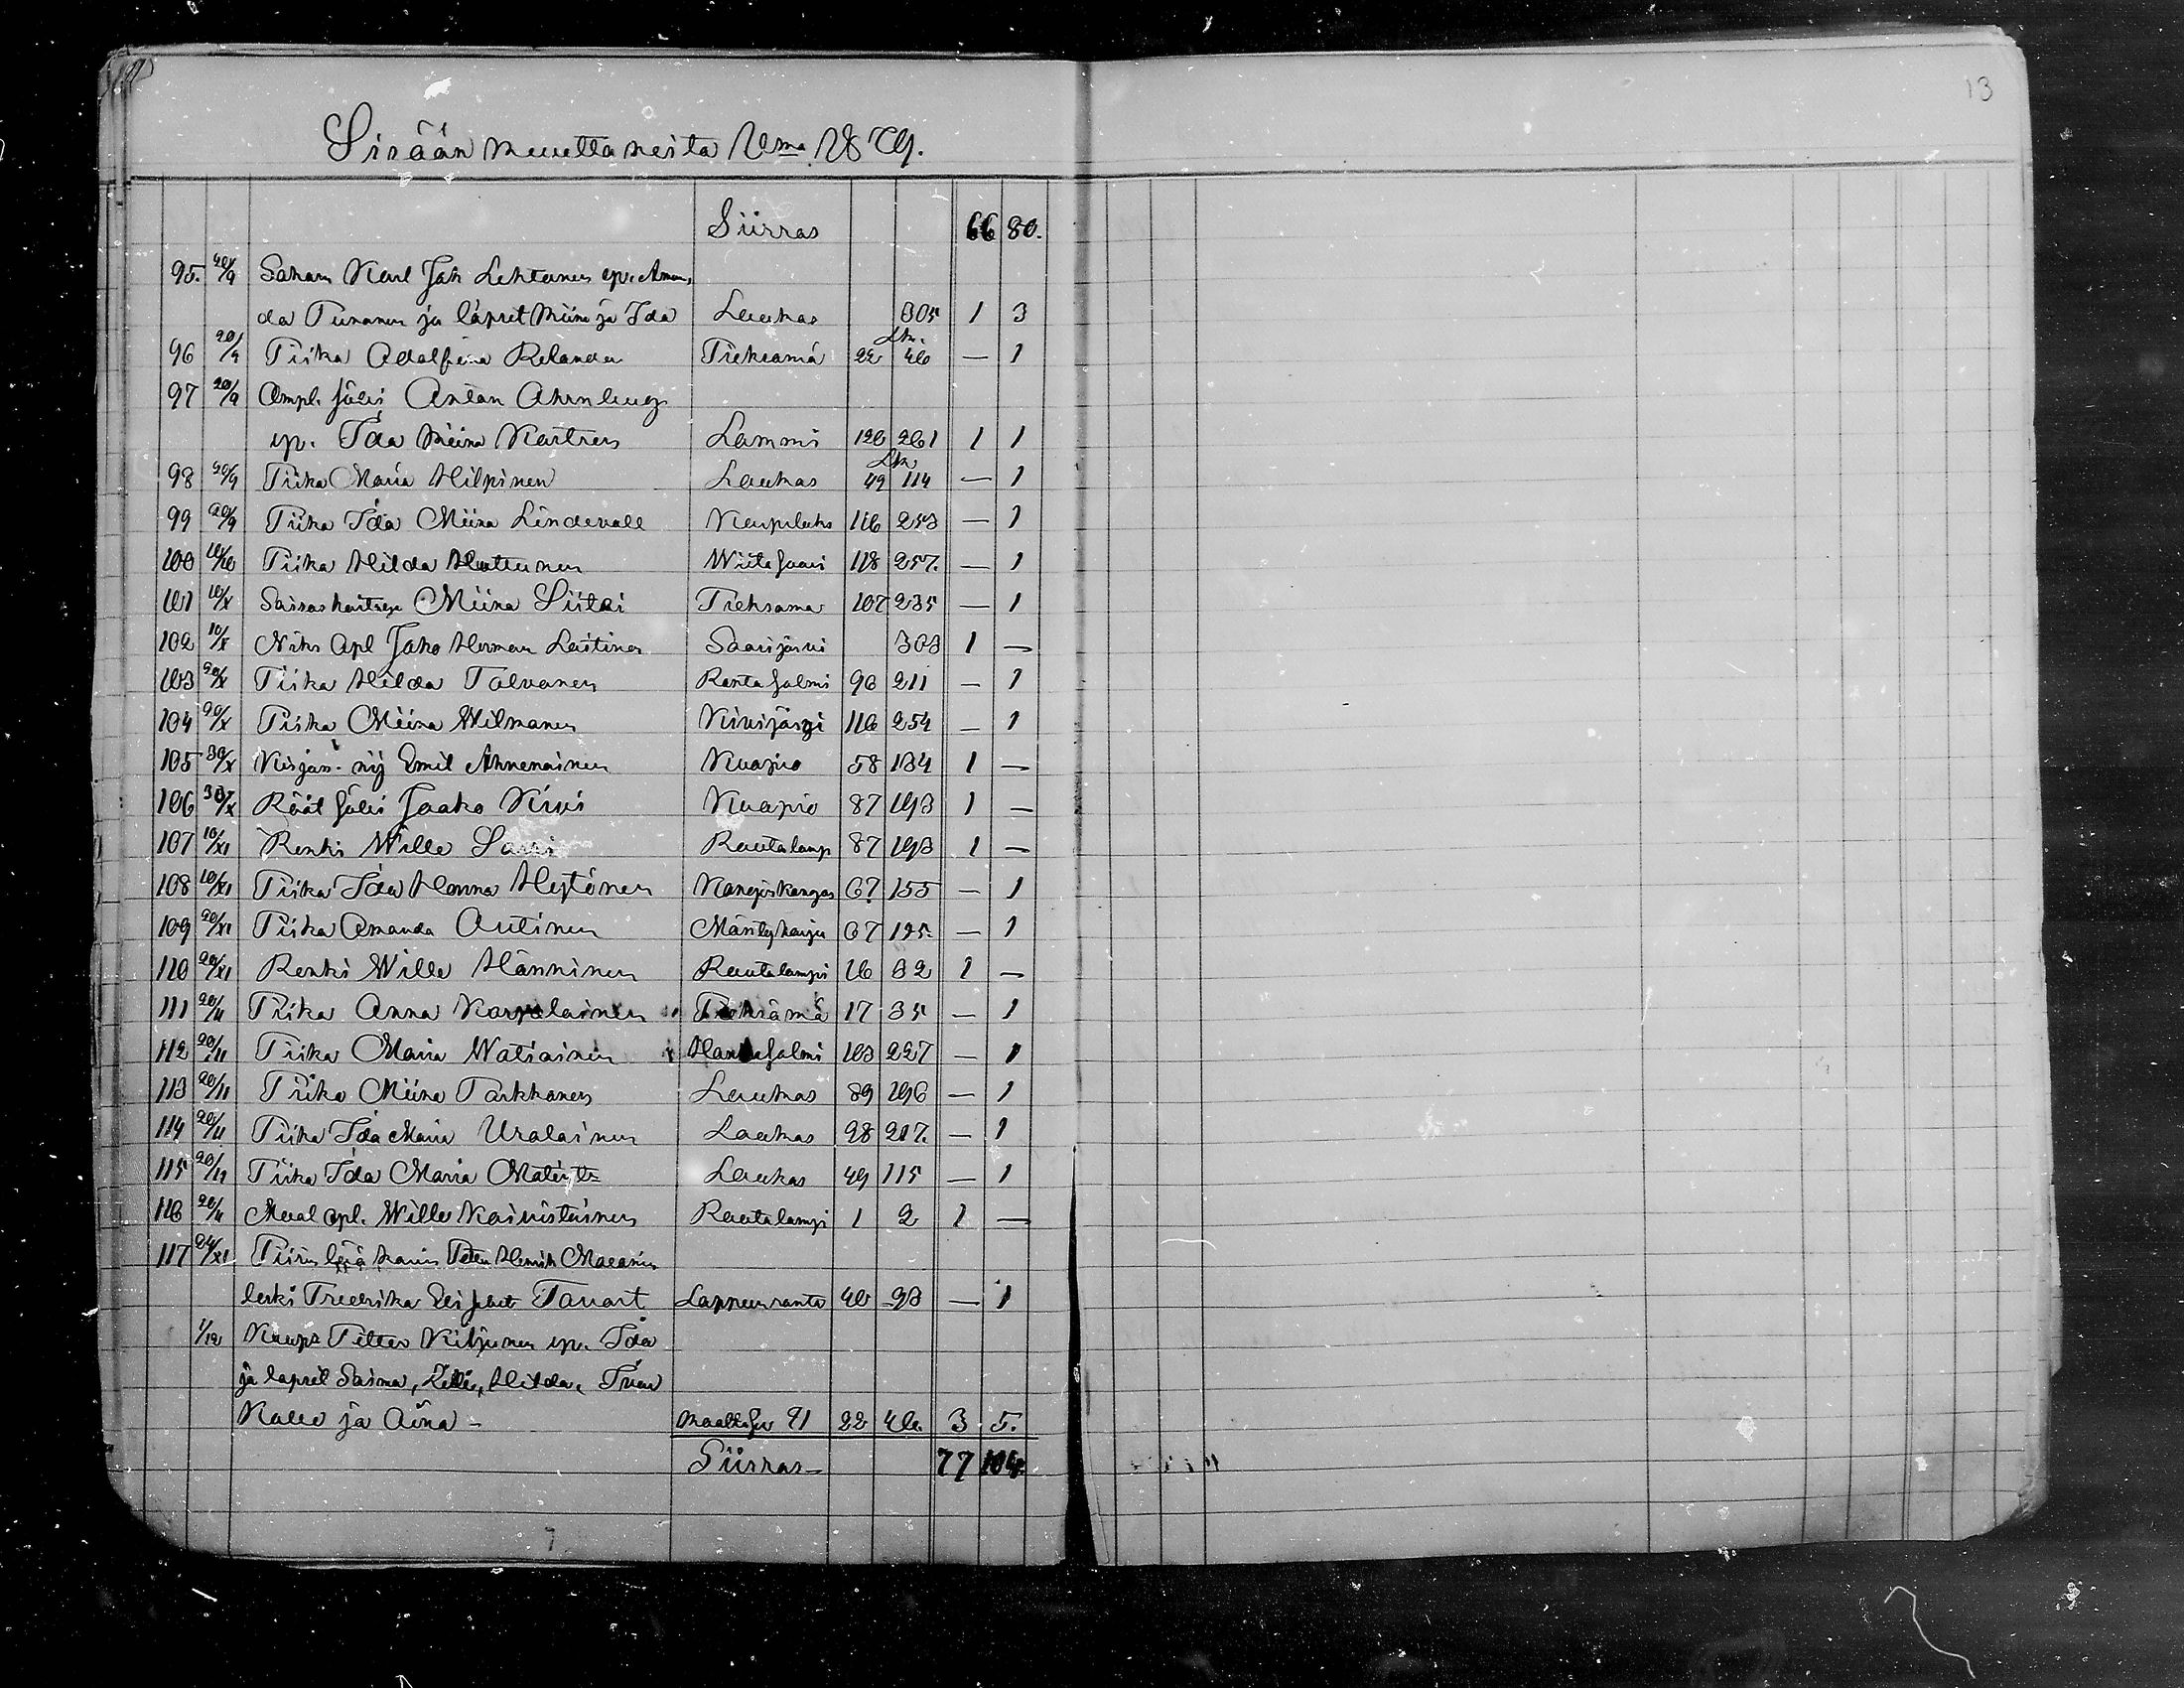 13
Sisään muuttaneita Vnna 1879.
Siirros 66 80.
95. 20/9 Saham Karl Jak Lehtonen vpr. Aman,
da Tuunanen ja lapset Miina ja Ida Laukas 305 1 3
96 20/9 Piika Adolfina Relander Pieksamä 22 46 — 1
97 20/9 Ompl. sälli Anton Ahrnberg
vp. Ida Miina Lammi 126 261 1 1
Lk.
98 20/9 Piika Maria Hilpinen Laukas 49 114 — 1
99 20/9 Piika Ida Miina Lindevall 116 253 — 1
100 10/10 Piika Hilda Huttunen Wiitasaari 118 257. — 1
101 10/X Miina Siitari Pieksama 107 235 — 1
102 10/X Apl Jako Herman Leitinen Saarijärvi 303 1 —
103 20/X Piika Hilda Tolvanen Rantasalmi 96 211 — 1
104 20/X Piika Miina Wilmanen Kivijärvi 116 254 — 1
105 30/X Kirjan. nij Emil Ahvenainen Kuopio 58 134 1 —
106 30/X Räät sälli Jaako Kivi Kuopio 87 193 1 —
107 10/XI Renki Wille Rautalamp 87 193 1 —
108 10/XI Piika Ida Hanna Hytönen Kangaskangas 67 155 — 1
109 20/XI Piika Amanda Autinen Mäntyharju 67 125. — 1
110 20/XI Renki Wille Hänninen Rautalampi 16 32 1 —
111 20/11 Piika Anna Karjalainen Pieksämä 17 35 — 1
112 20/11 Piika Maria Watiainen Hankasalmi 103 227 — 1
113 20/11 Piika Miina Tarkkanen Laukas 89 196 — 1
114 20/11 Piika Ida Maria Uralainen Laukas 98 217. — 1
115 20/11 Piika Ida Maria Laukas 49 115 — 1
116 20/11 Muul opl. Wille Koivistoinen Rautalampi 1 2 1 —
117 24/XI Petter Henrik
leski Fredrika Elisabet Tavast Lappeenranta 40 93 — 1
1/12 Kaup: Petter Kiljunen vp. Ida
ja lapset Saima, Hilda,
Kalle ja Aina — 91 22 46. 3 5.
Siirros — 77 104
7